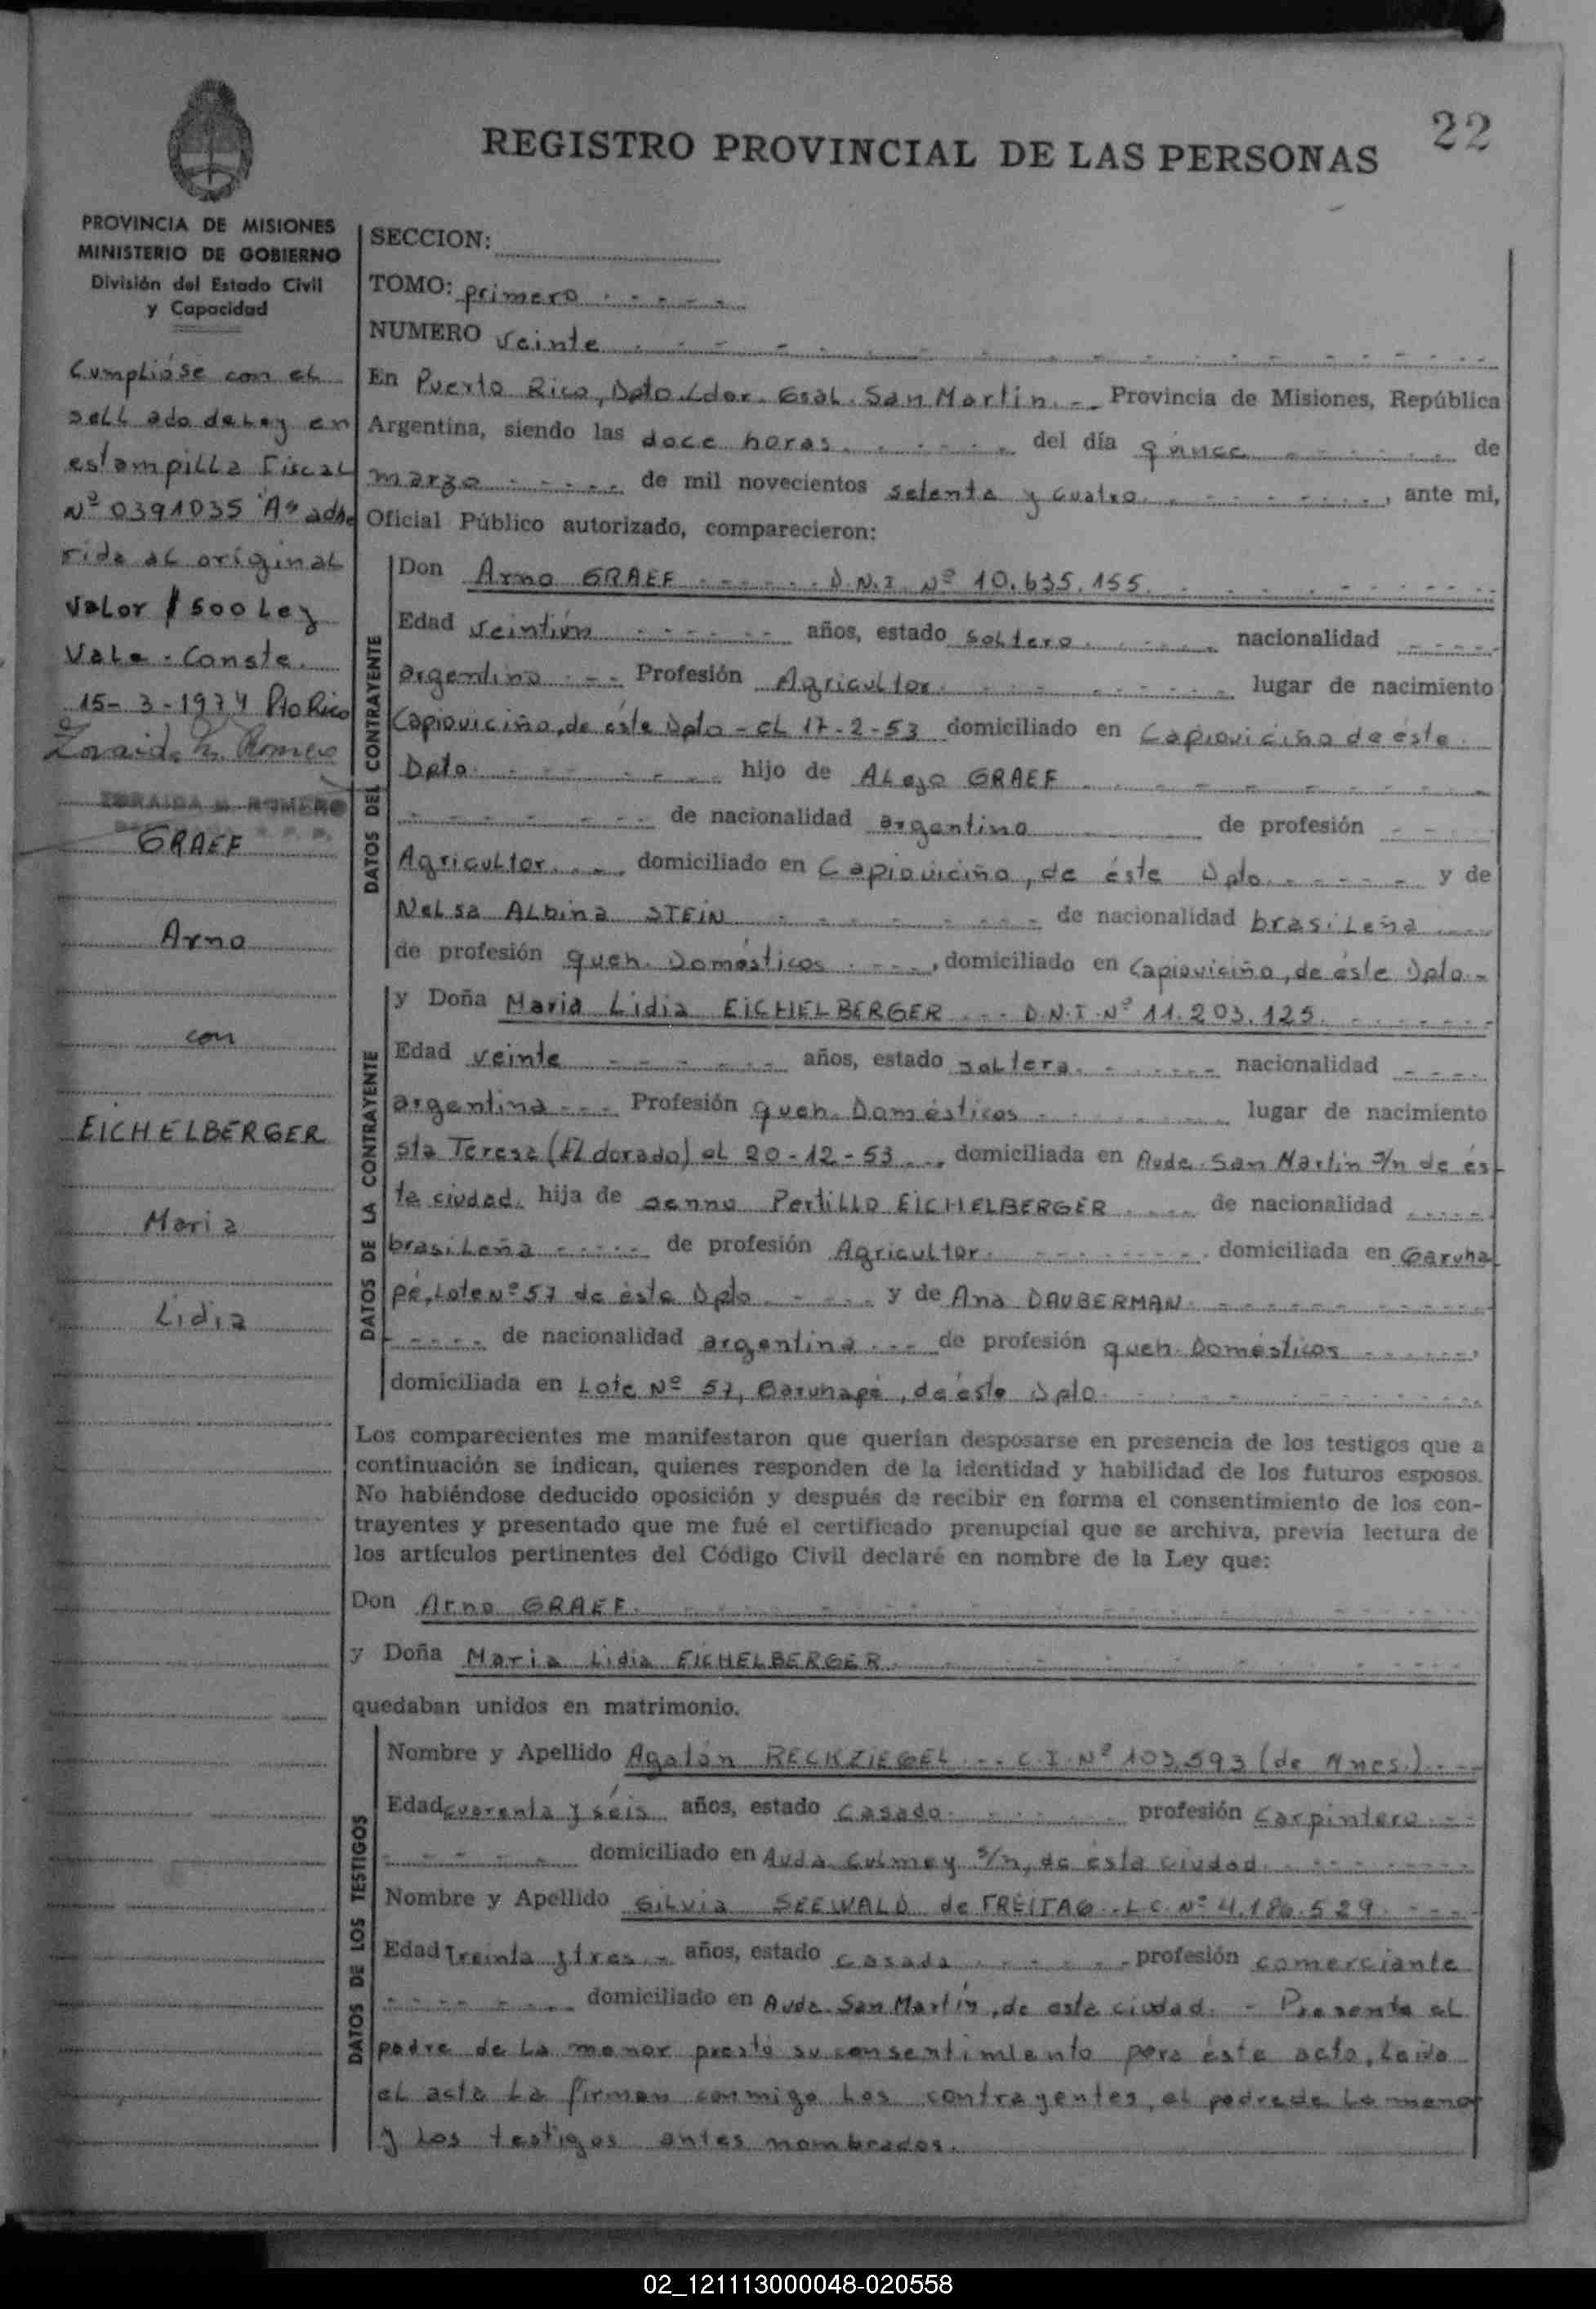 22
REGISTRO PROVINCIAL DE LAS PERSONAS
PROVINCIA DE MISIONES
MINISTERIO DE GOBIERNO
División del Estado Civil
y Capacidad
Cumplióse con el
sellado de Ley en
estampilla Fiscal
Nº 0391035 "A" adhe
rida al original
Valor $ 500 Ley
Vale - Conste.
15-3-1974 Pto Rico
Zoraida M. Romero
ZORAIDA M. ROMERO
GRAEF
Arno
con
EICHELBERGER
Maria
Lidia
SECCION:
TOMO: primero
NUMERO veinte
En Puerto Rico, Dpto. Ldor. Gral. San Martin. Provincia de Misiones, República
Argentina, siendo las doce horas del día quince de
marzo de mil novecientos setenta y cuatro, ante mi,
Oficial Público autorizado, comparecieron:
DATOS DEL CONTRAYENTE
Don Arno GRAEF D.N.I. Nº 10.635.155.
Edad veintiún años, estado soltero nacionalidad
argentino Profesión Agricultor lugar de nacimiento
Capioviciño, de éste Dpto - el 17-2-53 domiciliado en Capioviciño de éste
Dpto. hijo de Alejo GRAEF
de nacionalidad argentino de profesión
Agricultor domiciliado en Capioviciño, de éste Dpto. y de
Nelsa Albina STEIN de nacionalidad brasileña
de profesión queh. Domésticos, domiciliado en Capioviciño, de éste Dpto.
DATOS DE LA CONTRAYENTE
y Doña Maria Lidia EICHELBERGER D.N.I. Nº 11.203.125.
Edad veinte años, estado soltera nacionalidad
argentina Profesión queh. Domésticos lugar de nacimiento
Sta Teresa (Eldorado) el 20-12-53 domiciliada en Avda. San Martin s/n de és
ta ciudad. hija de Benno Pertillo EICHELBERGER de nacionalidad
brasileña de profesión Agricultor. domiciliada en Garuha
pé, Lote Nº 57 de éste Dpto y de Ana DAUBERMAN.
de nacionalidad argentina de profesión queh. Domésticos,
domiciliada en Lote Nº 57, Garuhapé, de éste Dplo.
Los comparecientes me manifestaron que querían desposarse en presencia de los testigos que a
continuación se indican, quienes responden de la identidad y habilidad de los futuros esposos.
No habiéndose deducido oposición y después de recibir en forma el consentimiento de los con-
trayentes y presentado que me fué el certificado prenupcial que se archiva, previa lectura de
los artículos pertinentes del Código Civil declaré en nombre de la Ley que:
Don Arno GRAEF.
y Doña Maria Lidia EICHELBERGER.
quedaban unidos en matrimonio.
DATOS DE LOS TESTIGOS
Nombre y Apellido Agatón RECKZIEGEL C.I. Nº 103.593 (de Mnes.)
Edad cuarenta y séis años, estado casado profesión carpintero
domiciliado en Avda. Culmey s/n, de ésta ciudad.
Nombre y Apellido Silvia SEEWALD de FREITAG L.C. Nº 4.186.529
Edad Treinta y tres años, estado casada profesión comerciante
domiciliado en Avda. San Martín, de esta ciudad. - Presente el
padre de la menor prestó su consentimiento para éste acto. Leída
el acta la firman conmigo los contrayentes, el padre de la menor
y los testigos antes nombrados.
02_121113000048-020558